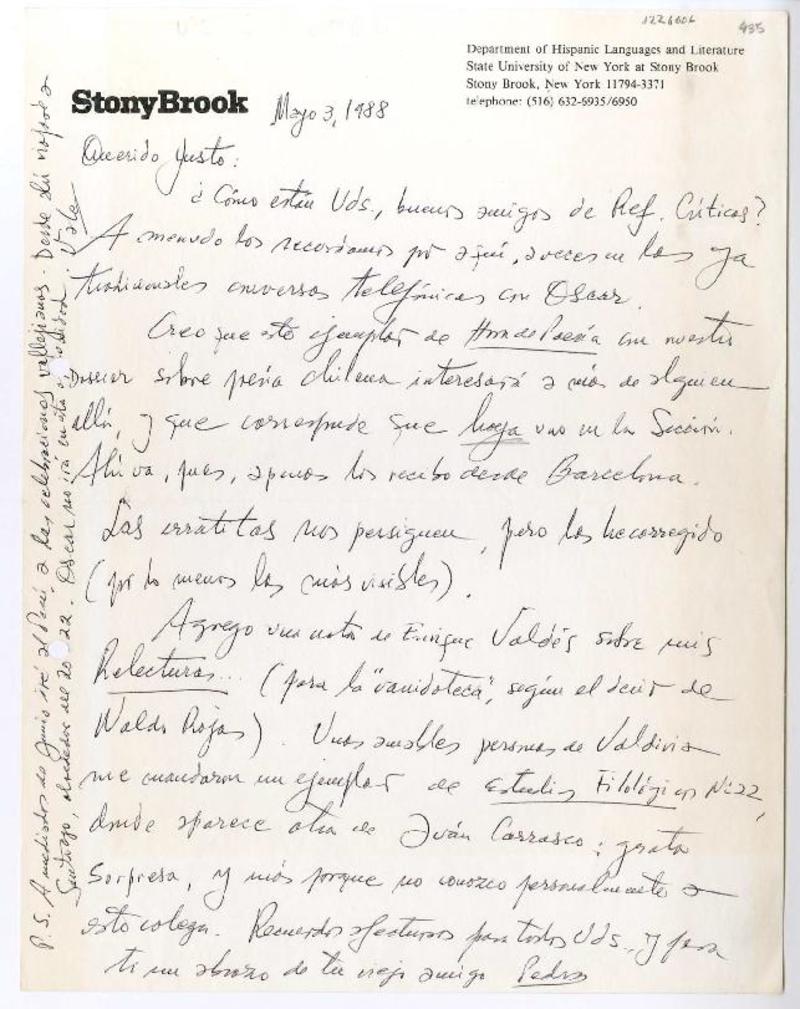 1226606
435
Department of Hispanic Languages and Literature
State University of New York at Stony Brook
Stony Brook, New York 11794-3371
telephone: (516) 632-6935/6950
StonyBrook
Mayo 3, 1988
Querido Justo:
¿Cómo están Uds., buenos amigos de Ref. Críticas?
A menudo los recordamos por aquí, a veces en las ya
tradicionales conversas telefónicas con Oscar.
Creo que este ejemplar de Hora de Poesía con nuestro
dossier sobre poesía chilena interesará a más de alguien
allá, y que corresponde que haya uno en la Sección.
Ahí va, pues, apenas los recibo desde Barcelona.
Las erratitas nos persiguen, pero las he corregido
(por lo menos las más visibles).
Agrego una nota de Enrique Valdés sobre mis
Relecturas... (para la "vanidoteca", según el decir de
Waldo Rojas). Unas amables personas de Valdivia
me mandaron un ejemplar de Estudios Filológicos Nº 22,
donde aparece otra de Iván Carrasco: grata
sorpresa, y más porque no conozco personalmente a
este colega. Recuerdos afectuosos para todos Uds., y para
ti un abrazo de tu viejo amigo Pedro
P.S. A mediados de Junio iré al Perú a las celebraciones vallejianas. Desde ahí a
Santiago, alrededor del 20 o 22. Oscar no irá en esta oportunidad. Vale